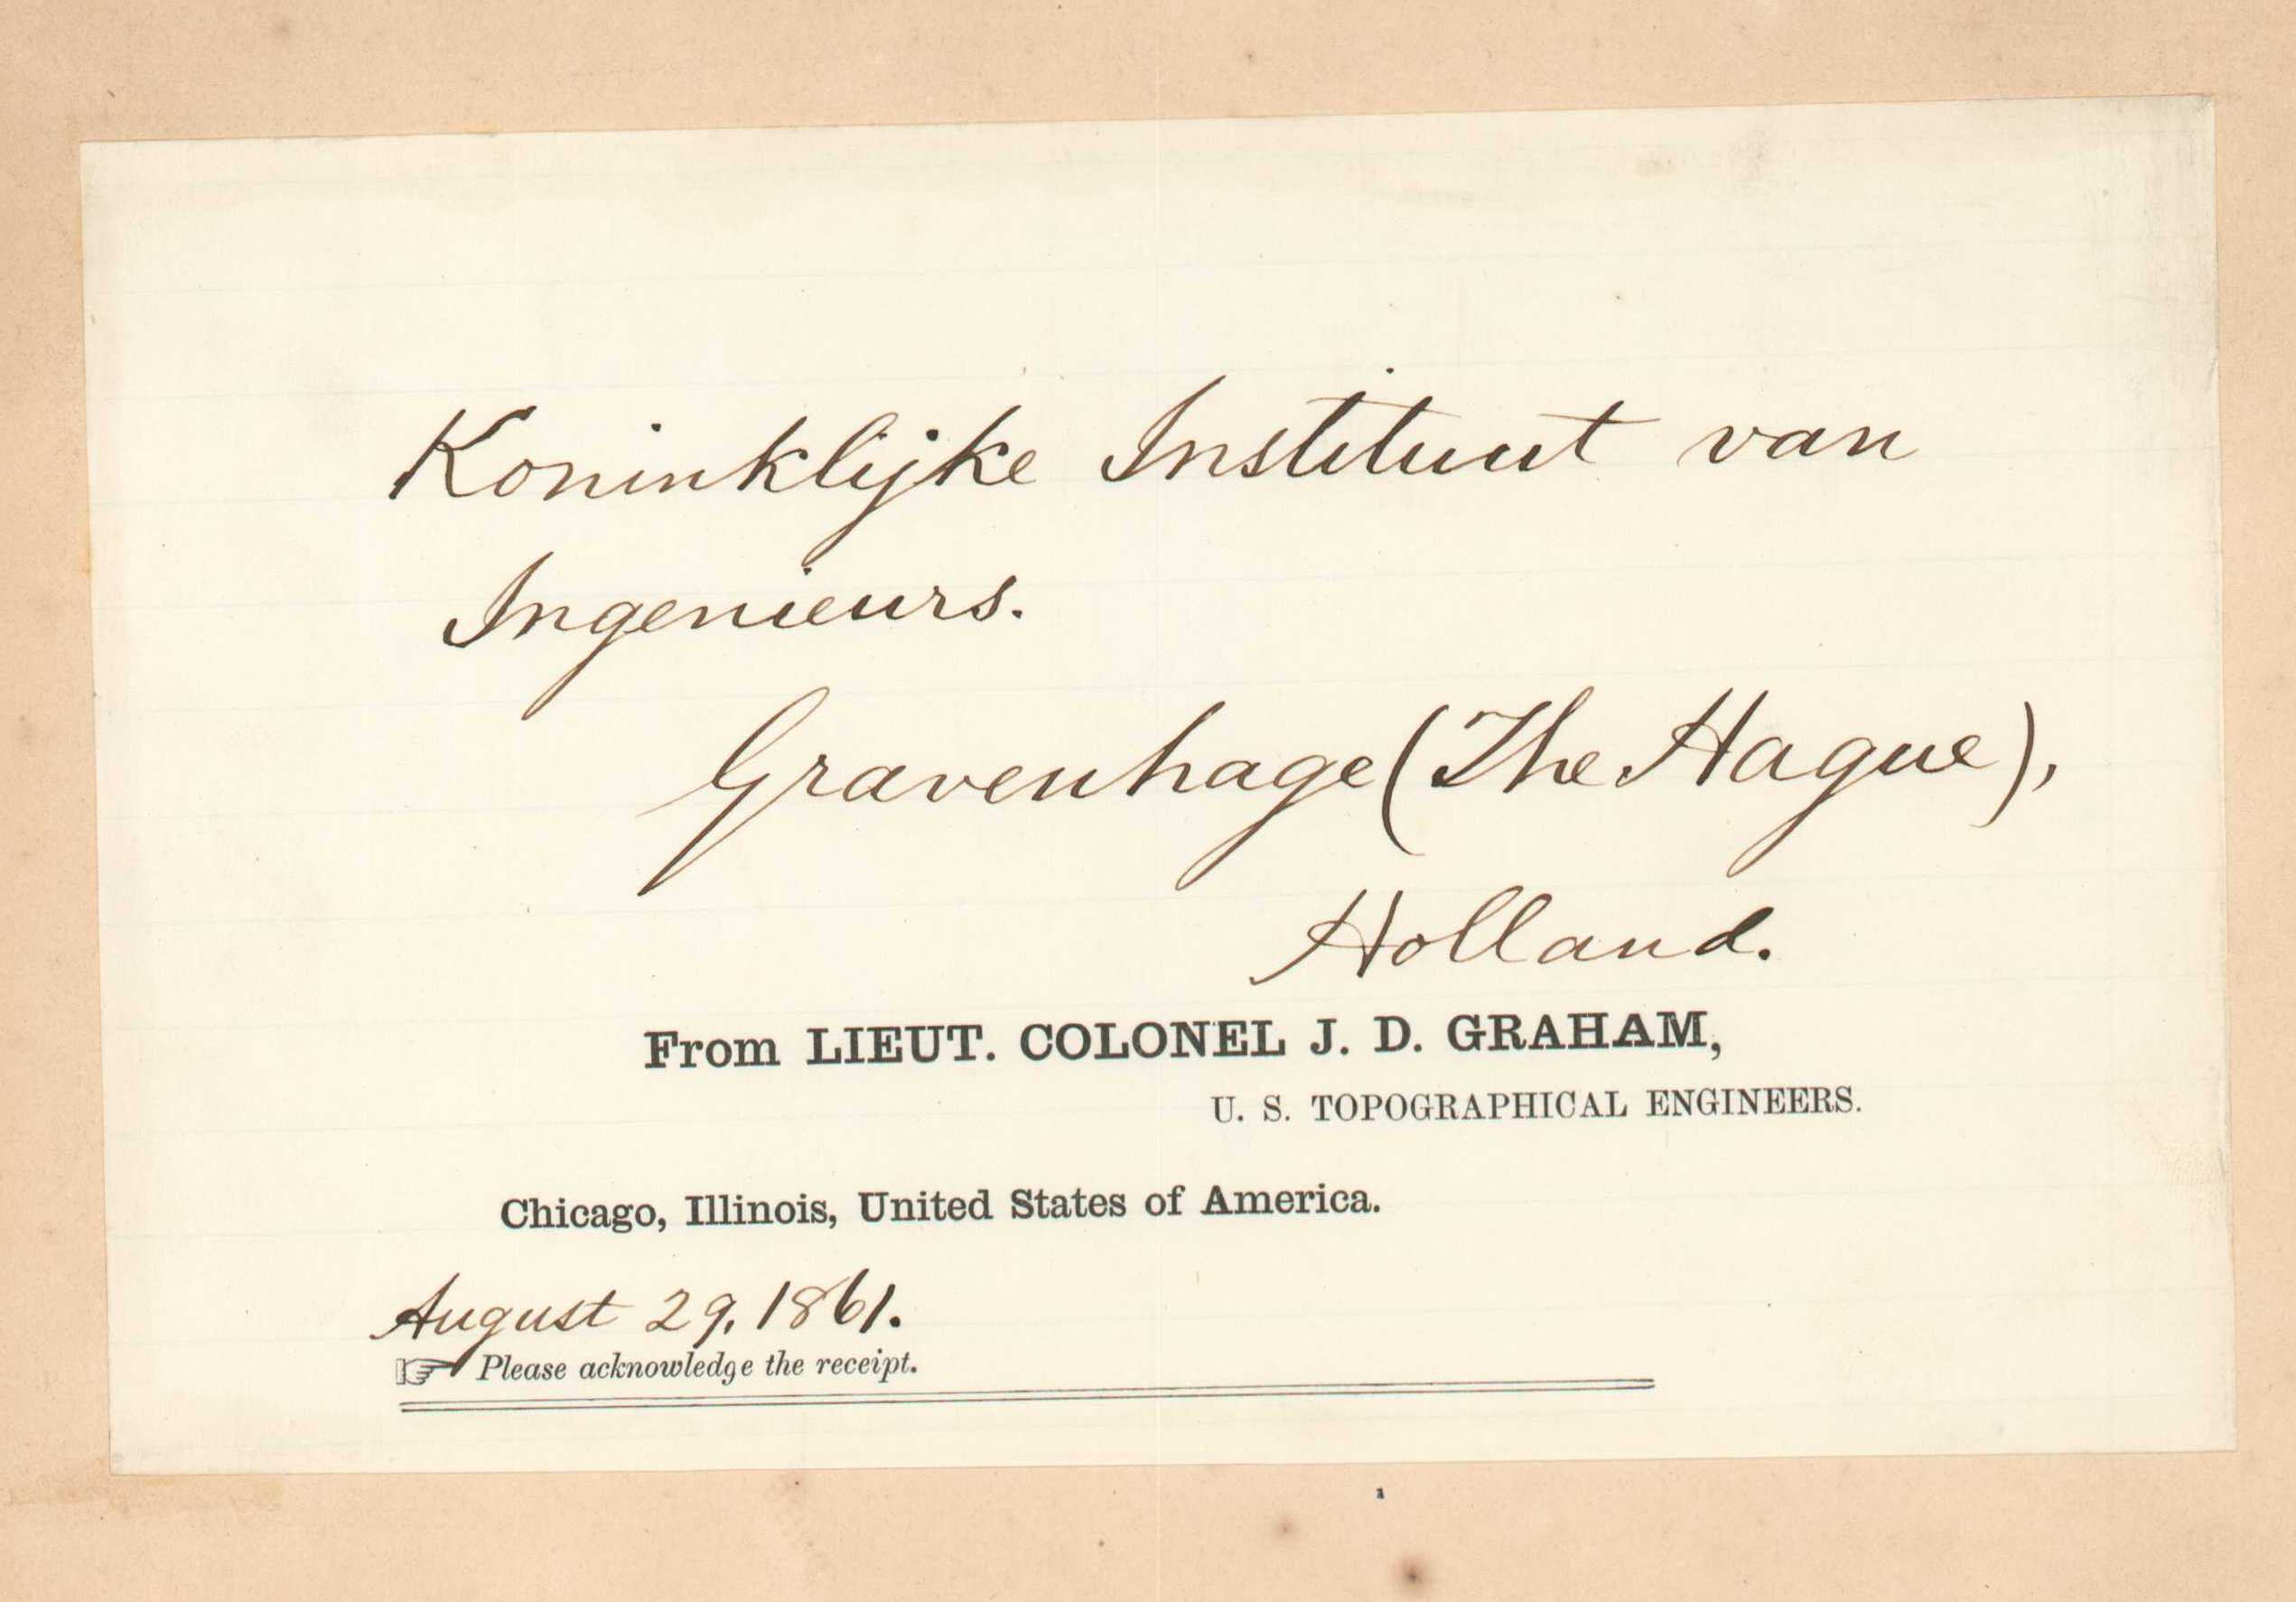 Koninklijke Instituut van
Ingenieurs.
Gravenhage (The Hague),
Holland.
From LIEUT. COLONEL J. D. GRAHAM,
U. S. TOPOGRAPHICAL ENGINEERS.
Chicago, Illinois, United States of America.
August 29, 1861.
☞ Please acknowledge the receipt.